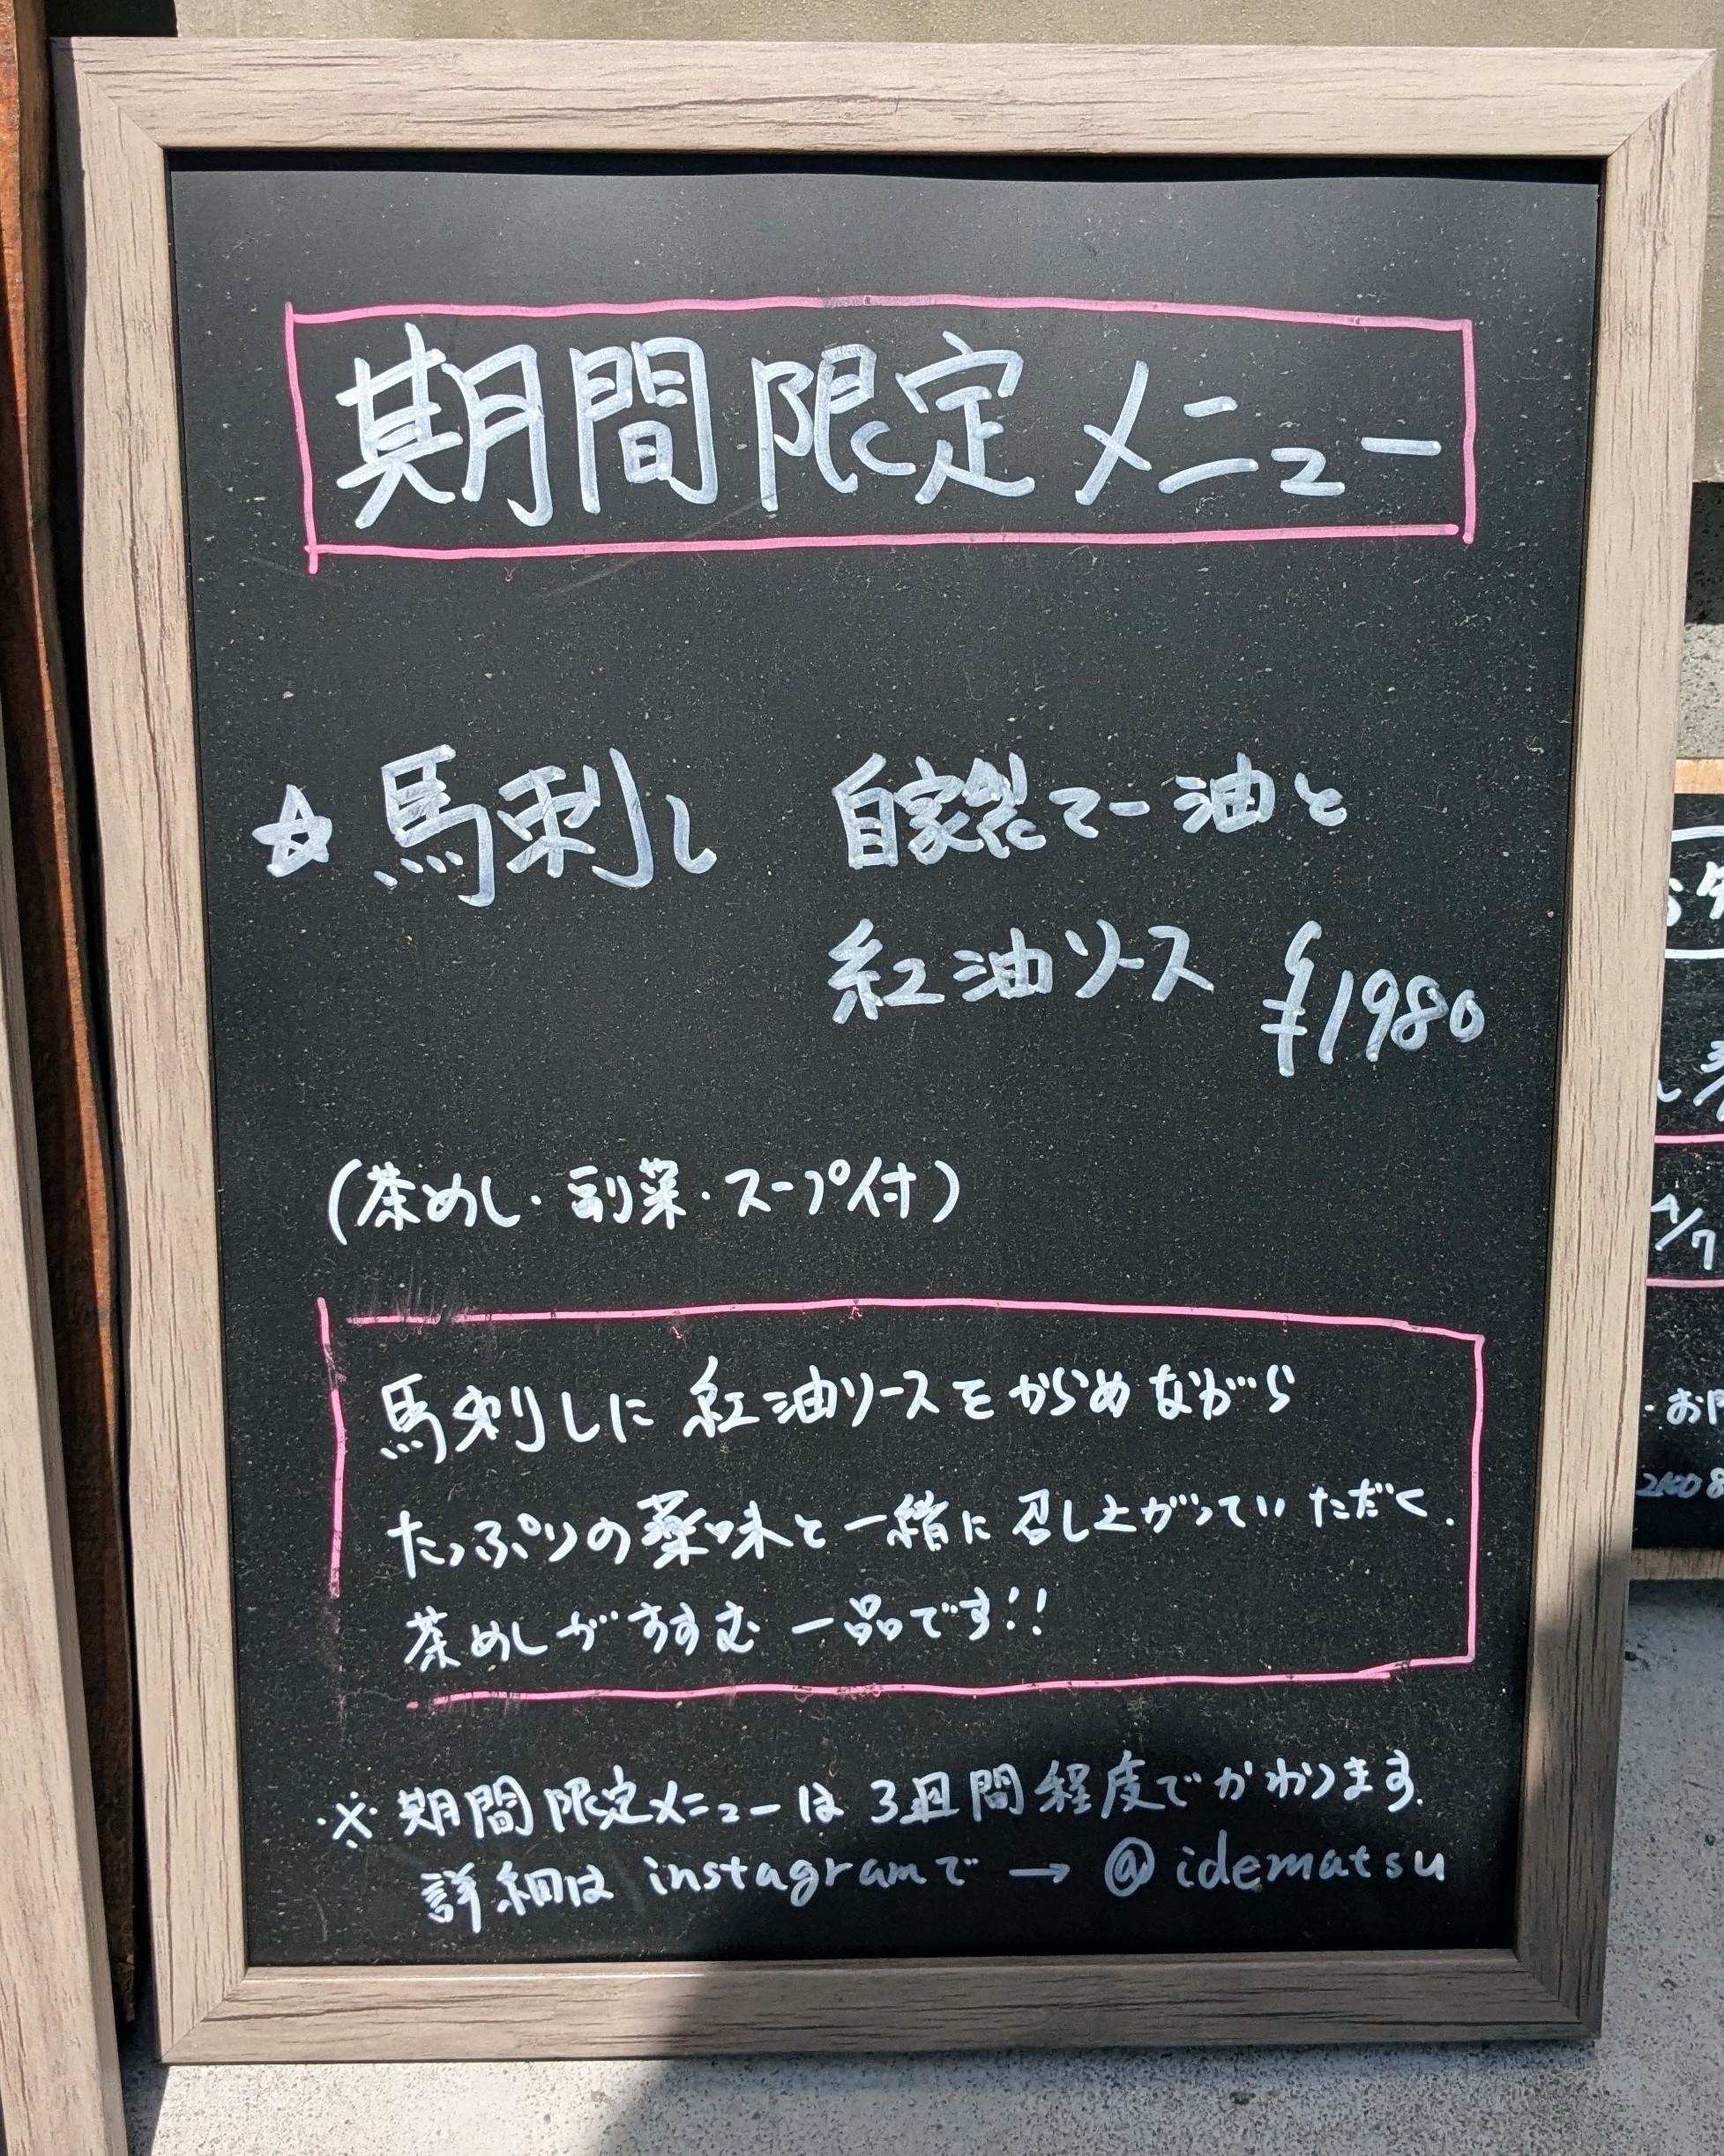 期間限定メニュー
☆馬刺し 自家製マー油と
紅油ソース ¥1980
(茶めし・副菜・スープ付)
馬刺しに紅油ソースをからめながら
たっぷりの薬味と一緒に召し上がっていただく、
茶めしがすすむ一品です!!
※期間限定メニューは3週間程度でかわります。
詳細は instagramで → @idematsu
4/7
・お